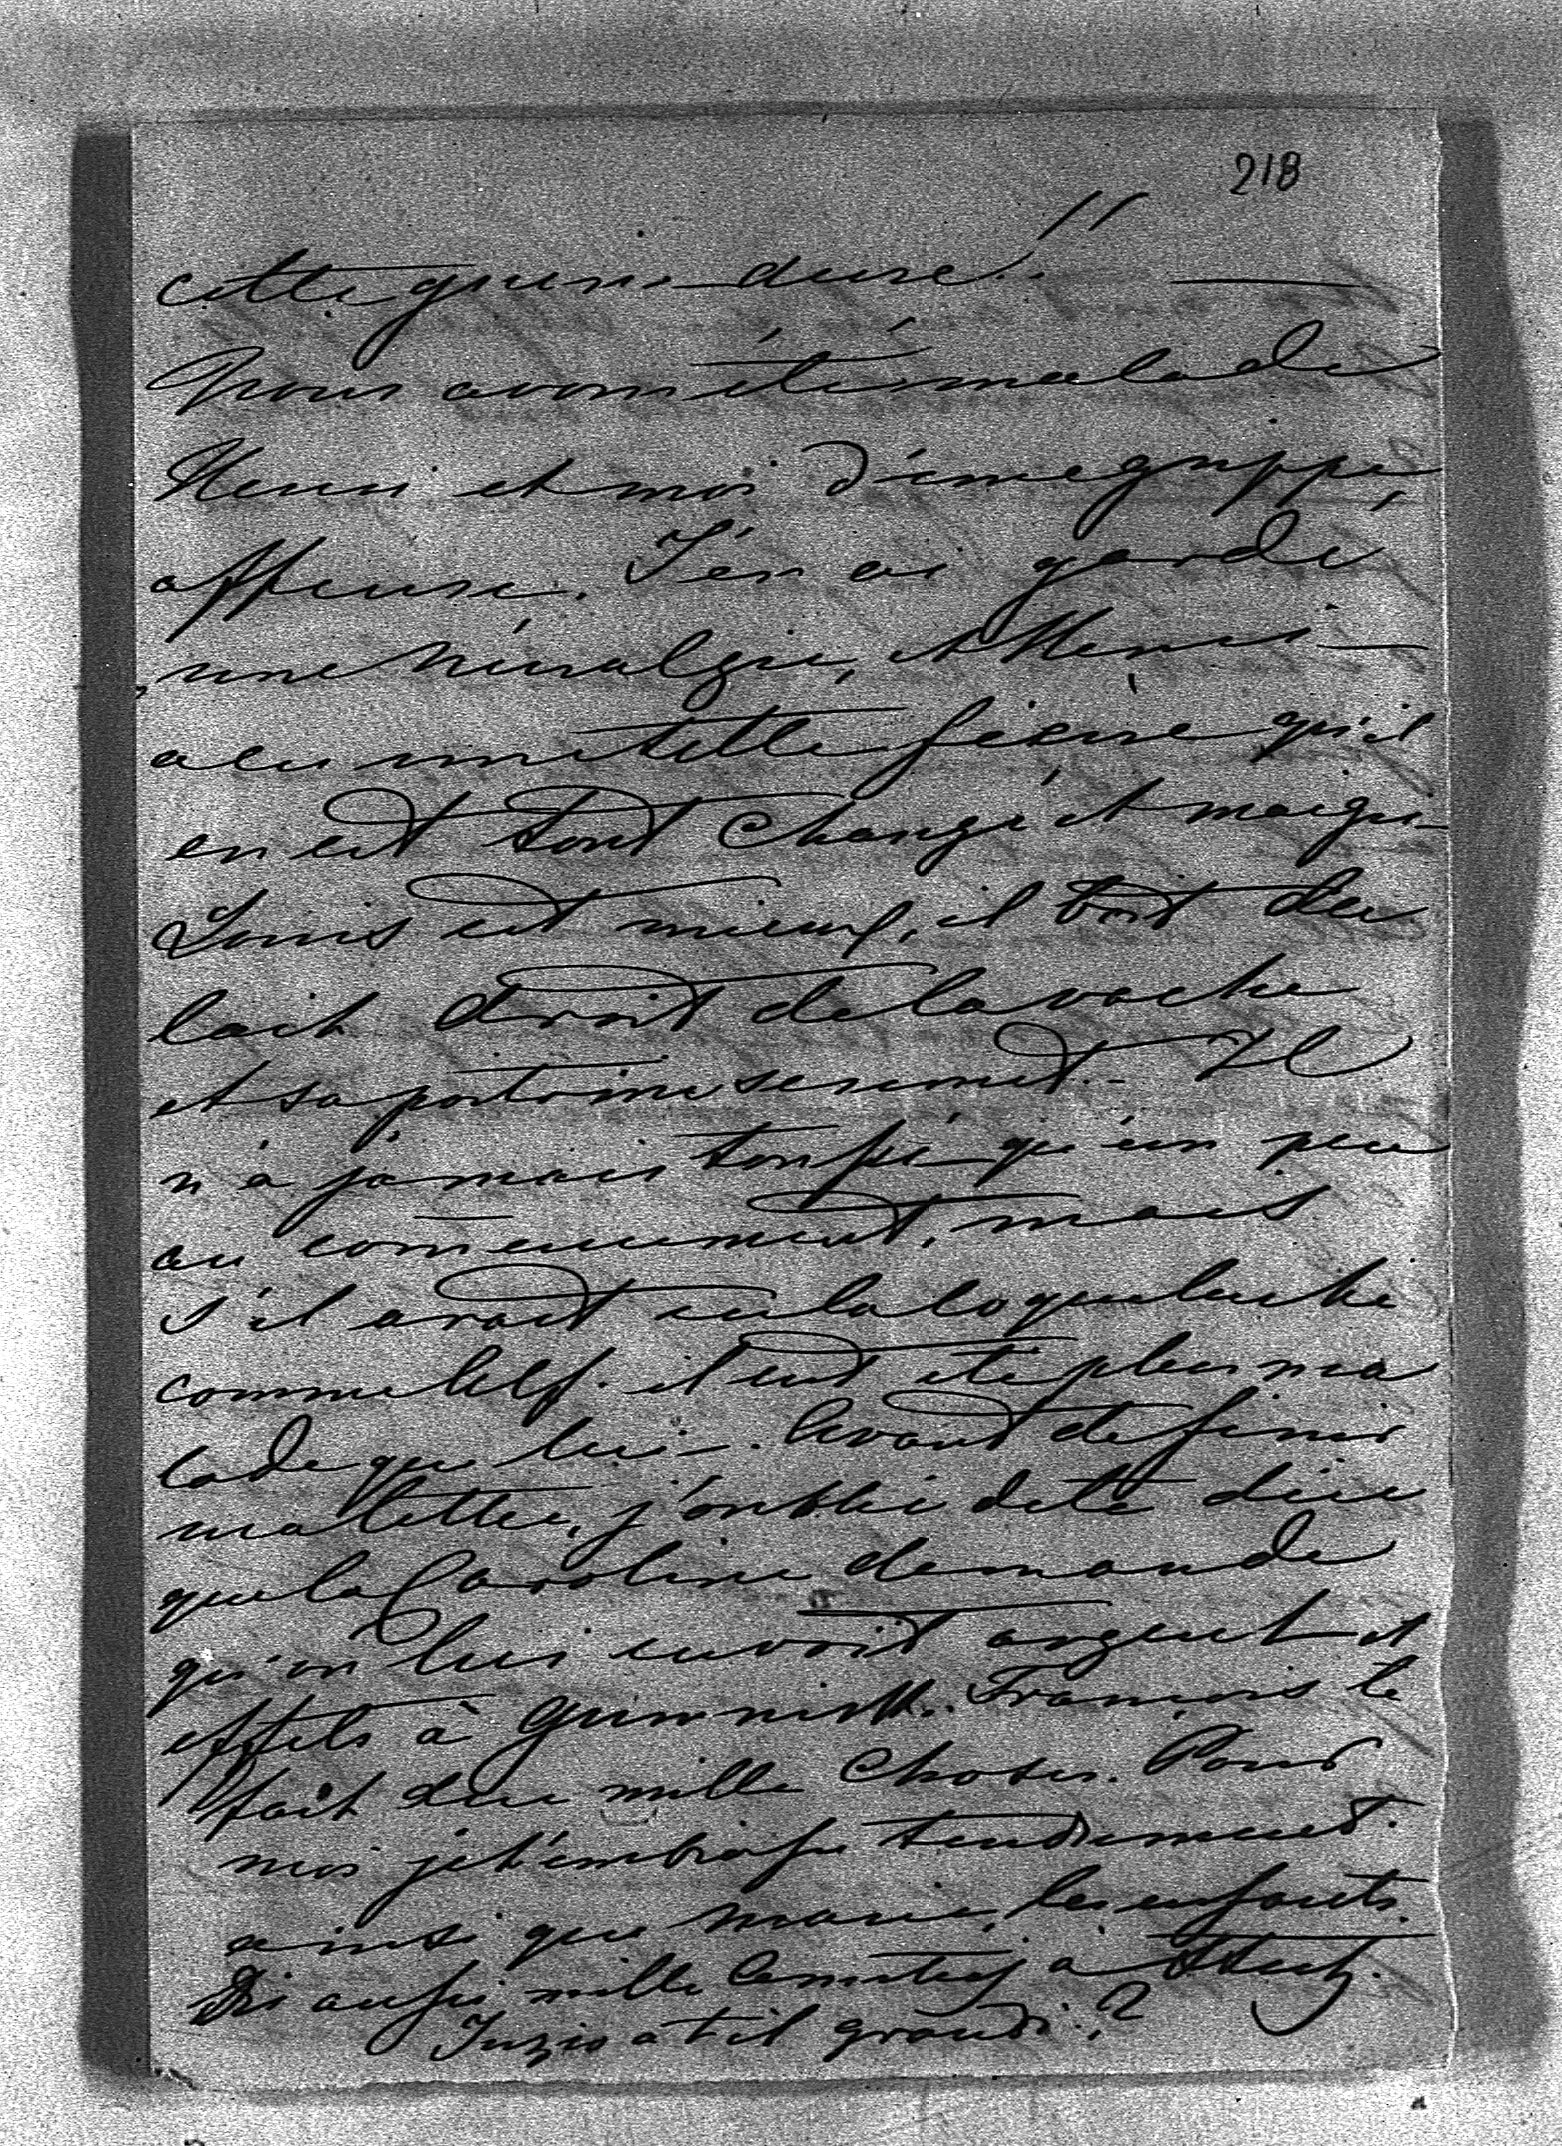 218
cette guerre dure!!
Nous avons été malade
Henri et moi d'une grippe
affreuse. J'en ai gardé
une névralgie, et Henri
a eu une telle fièvre qu'il
en est tout changé et maigri
Louis est mieux, il boit du
lait droit de la vache
et sa poitrine se remet. Il
n'a jamais toussé qu'un peu
au commencement, mais
s'il avait eu la coqueluche
comme il eut été plus ma
lade que lui. Avant de finir
ma lettre, j'oublie de te dire
que la Caroline demande
qu'on lui envoit argent et
effets à François te
fait dire mille choses. Pour
moi je t'embrasse tendrement.
ainsi que Marie, les enfants.
Dis aussi mille à
a t il grandi?